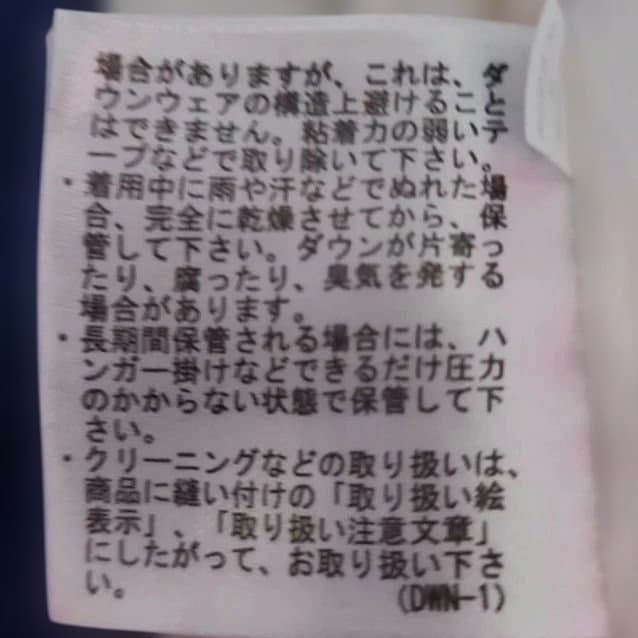 場合がありますが、これは、ダ
ウンウェアの構造上避けること
はできません。粘着力の弱いテ
ープなどで取り除いて下さい。
・着用中に雨や汗などでぬれた場
合、完全に乾燥させてから、保
管して下さい。ダウンが片寄っ
たり、腐ったり、臭気を発する
場合があります。
・長期間保管される場合には、ハ
ンガー掛けなどできるだけ圧力
のかからない状態で保管して下
さい。
・クリーニングなどの取り扱いは、
商品に縫い付けの「取り扱い絵
表示」、「取り扱い注意文章」
にしたがって、お取り扱い下さ
い。 (DWN-1)